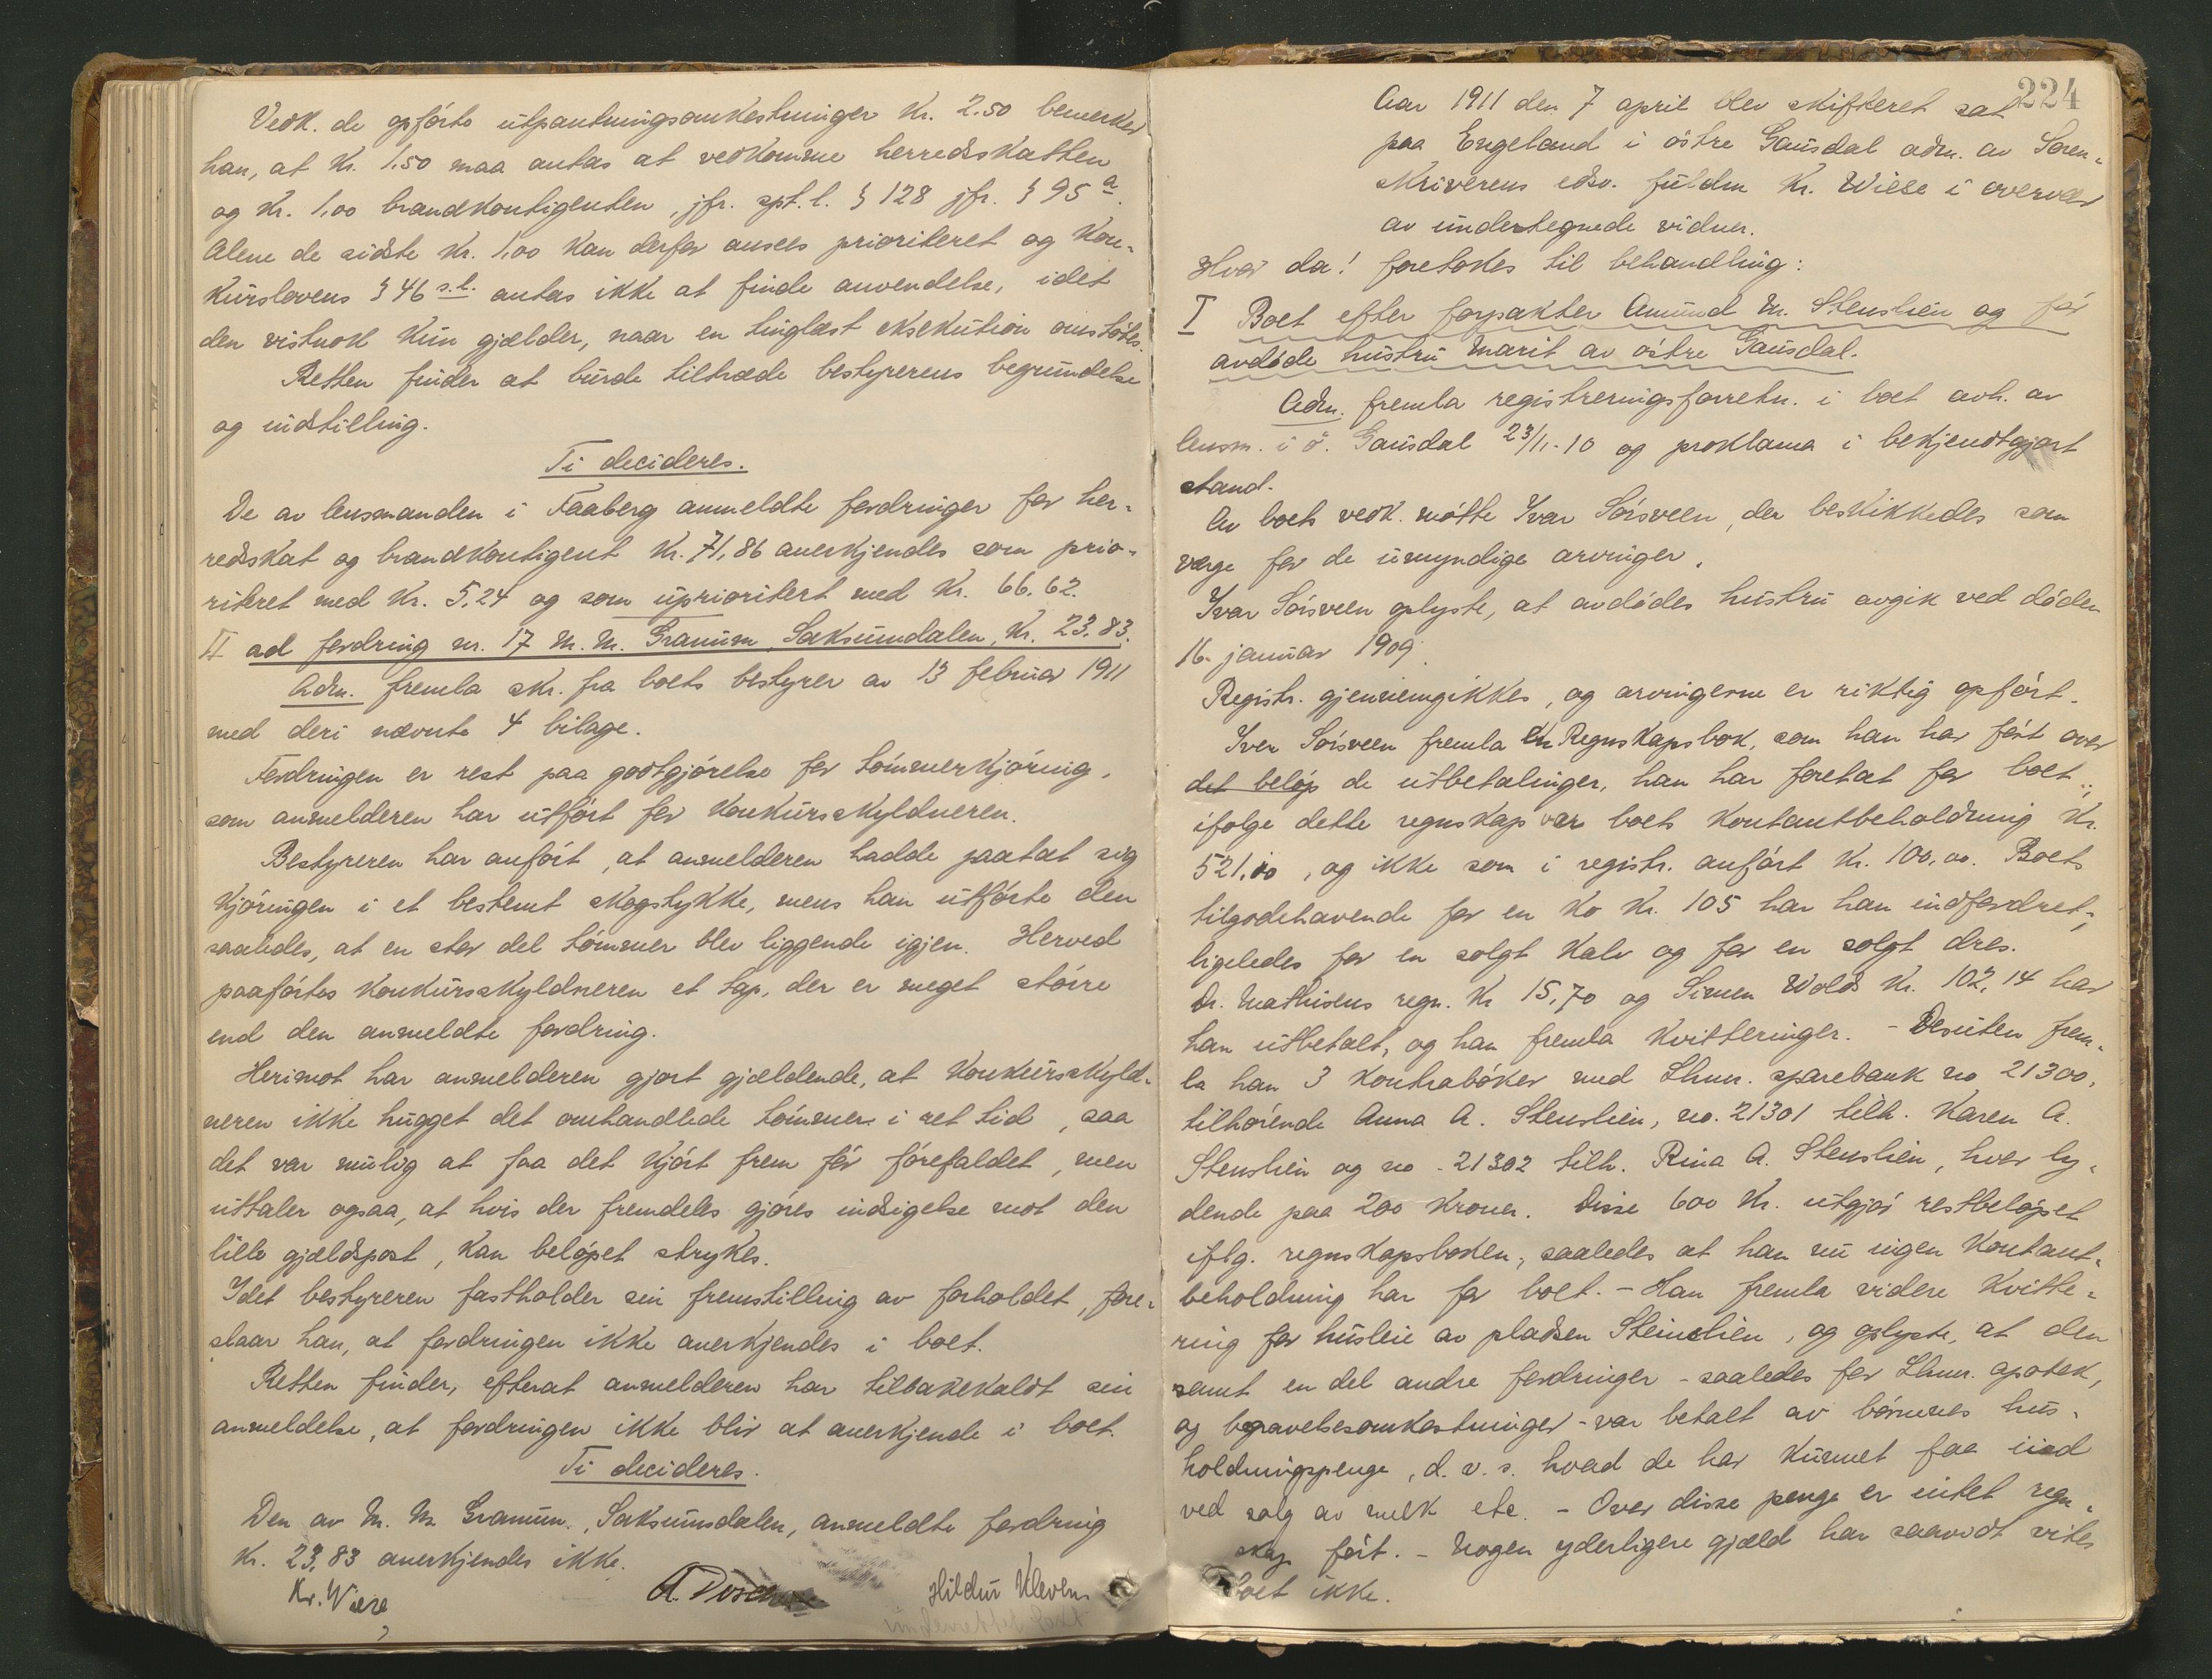 Vedk. de opførte utpantningsomkostninger kr. 2.50 bemerker
han, at kr. 1.50 maa antas at vedkomme herredskatten
og kr. 1,00 brandkontigenten, jfr. spt. l. § 128 jfr. § 95 a.
Alene de sidste kr. 1,00 kan derfor ansees prioriteret og kon-
kurslovens § 46 s.l. antas ikke at finde anvendelse, idet
den vistnok kun gjælder, naar en tinglæst eksekution omstøtes.
Retten finder at burde tiltræde bestyrerens begrundelse
og indstilling.
Ti decideres.
De av lensmanden i Faaberg anmeldte fordringer for her-
redskat og brandkontigent kr. 71,86 anerkjendes som prio-
riteret med kr. 5,24 og som uprioritert med kr. 66.62.
II ad fordring nr. 17 M. M. Granum, Saksumdalen, kr. 23.83.
Adm. fremla skr. fra boets bestyrer av 13 februar 1911
med deri nævnte 4 bilage.
Fordringen er rest paa godtgjørelse for tømmerkjøring,
som anmelderen har utført for konkursskyldneren.
Bestyreren har anført, at anmelderen hadde paatat sig
kjøringen i et bestemt skogstykke, mens han utførte den
saaledes, at en stor del tømmer blev liggende igjen. Herved
paaførtes konkursskyldneren et tap, der er meget større
end den anmeldte fordring.
Herimot har anmelderen gjort gjældende, at konkursskyld-
neren ikke hugget det omhandlede tømmer i ret tid, saa
det var mulig at faa det kjørt frem før førefaldet, men
uttaler ogsaa, at hvis der fremdeles gjøres indsigelse mot den
lille gjældspost, kan beløpet strykes.
Idet bestyreren fastholder sin fremstilling av forholdet, fore-
slaar han, at fordringen ikke anerkjendes i boet.
Retten finder, efterat anmelderen har tilbakekaldt sin
anmeldelse, at fordringen ikke blir at anerkjende i boet.
Ti decideres.
Den av M. M. Granum, Saksumsdalen, anmeldte fordring
kr. 23,83 anerkjendes ikke.
Kr. Wiese A. Hildur Kleven
224
Aar 1911 den 7 april blev skifteret sat
paa Engeland i østre Gausdal adm. av Soren-
skriverens edsv. fuldm Kr. Wiese i overvær
av undertegnede vidner.
Hvor da! foretokes til behandling:
I Boet efter forpakter Amund M. Stenslien og før
avdøde hustru Marit av østre Gausdal.
Adm. fremla registreringsforretn. i boet avh. av
lensm. i ø. Gausdal 23/11-10 og proklama i bekjendtgjort
stand.
Av boets vedk. møtte Ivar Sørsveen, der beskikkedes som
verge for de umyndige arvinger.
Ivar Sørsveen oplyste, at avdødes hustru avgik ved døden
16. januar 1909.
Registr. gjennemgikkes, og arvingerne er riktig opført.
Iver Sørsveen fremla en Regnskapsbok, som han har ført over
det beløp de utbetalinger, han har foretat for boet;
ifølge dette regnskap var boets kontantbeholdning kr.
521.00, og ikke som i registr. anført kr. 100,00. Boets
tilgodehavende for en ko kr. 105 har han indfordret,
ligeledes for en solgt kalv og for en solgt dres.
Dr. Mathisens regn. kr 15,70 og Simen Wolds kr. 102,14 har
han utbetalt, og han fremla kvitteringer. - Desuten frem-
la han 3 kontrabøker med Lhmr. sparebank no 21300,
tilhørende Anna A. Stenslien, no. 21301 tilh. Karen A.
Stenslien og no - 21302 tilh. Rina A. Stenslien, hver ly-
dende paa 200 kroner. Disse 600 kr. utgjør restbeløpet
iflg. regnskapsboken, saaledes at han nu ingen kontant-
beholdning har for boet. - Han fremla videre kvitte-
ring for husleie av pladsen Steinslien, og oplyste, at den
samt en del andre fordringer - saaledes for Lhmr. apotek,
og begravelsesomkostninger - var betalt av børnenes hus-
holdningspenge, d. v. s. hvad de har kunnet faa ind
ved salg av melk etc. - Over disse penge er intet regn-
skap ført. - Nogen yderligere gjæld har saavidt vites
boet ikke.